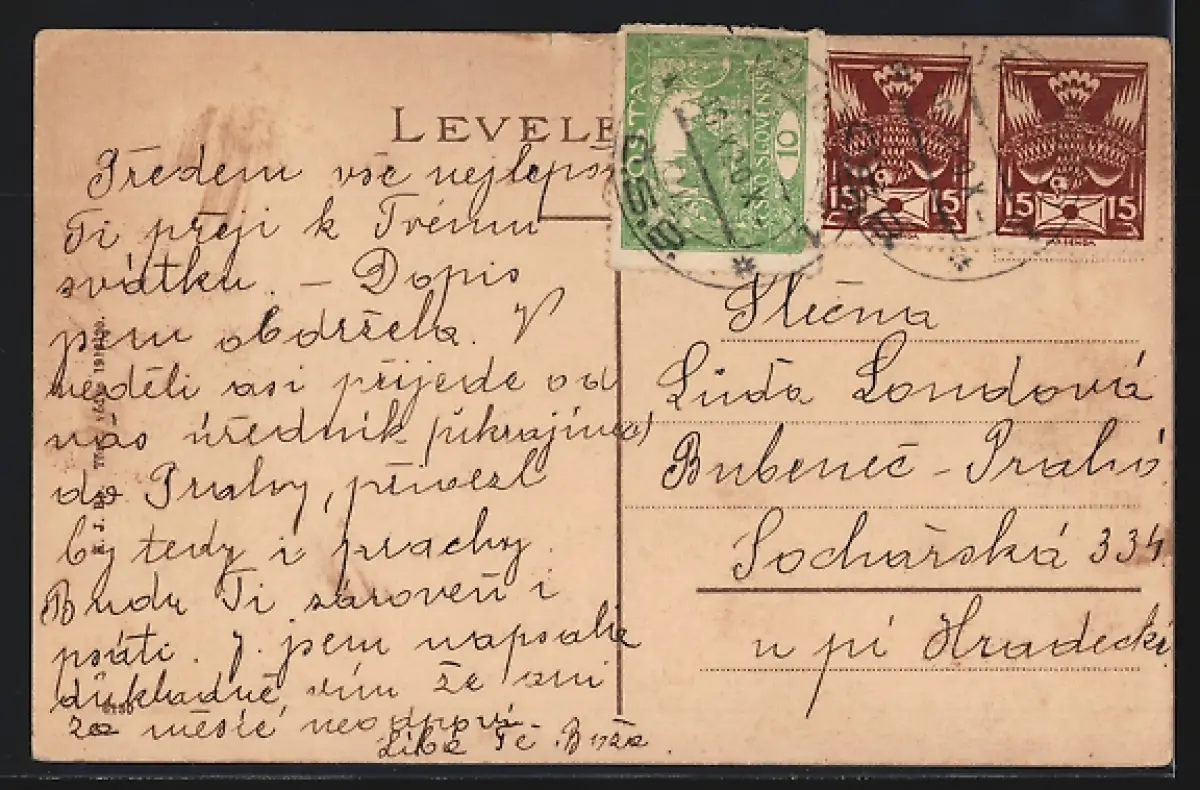 LEVELE
Předem vše nejlepší
Ti přeji k Tvému
svátku. – Dopis
jsem obdržela. V
neděli asi přijede od
nás úředník
do Prahy, přivezl
by tedy i prachy.
Budu Ti zároveň i
psáti. J. jsem napsala
důkladně, vím že ani
za měsíc neodpoví.
Líbá Tě Boža.
POŠTA
ČESKO-SLOVENSKÁ
10
15
15
15
15
Slečna
Lída Londová
Bubeneč – Praha
Sochařská 334
u pí Hradecké